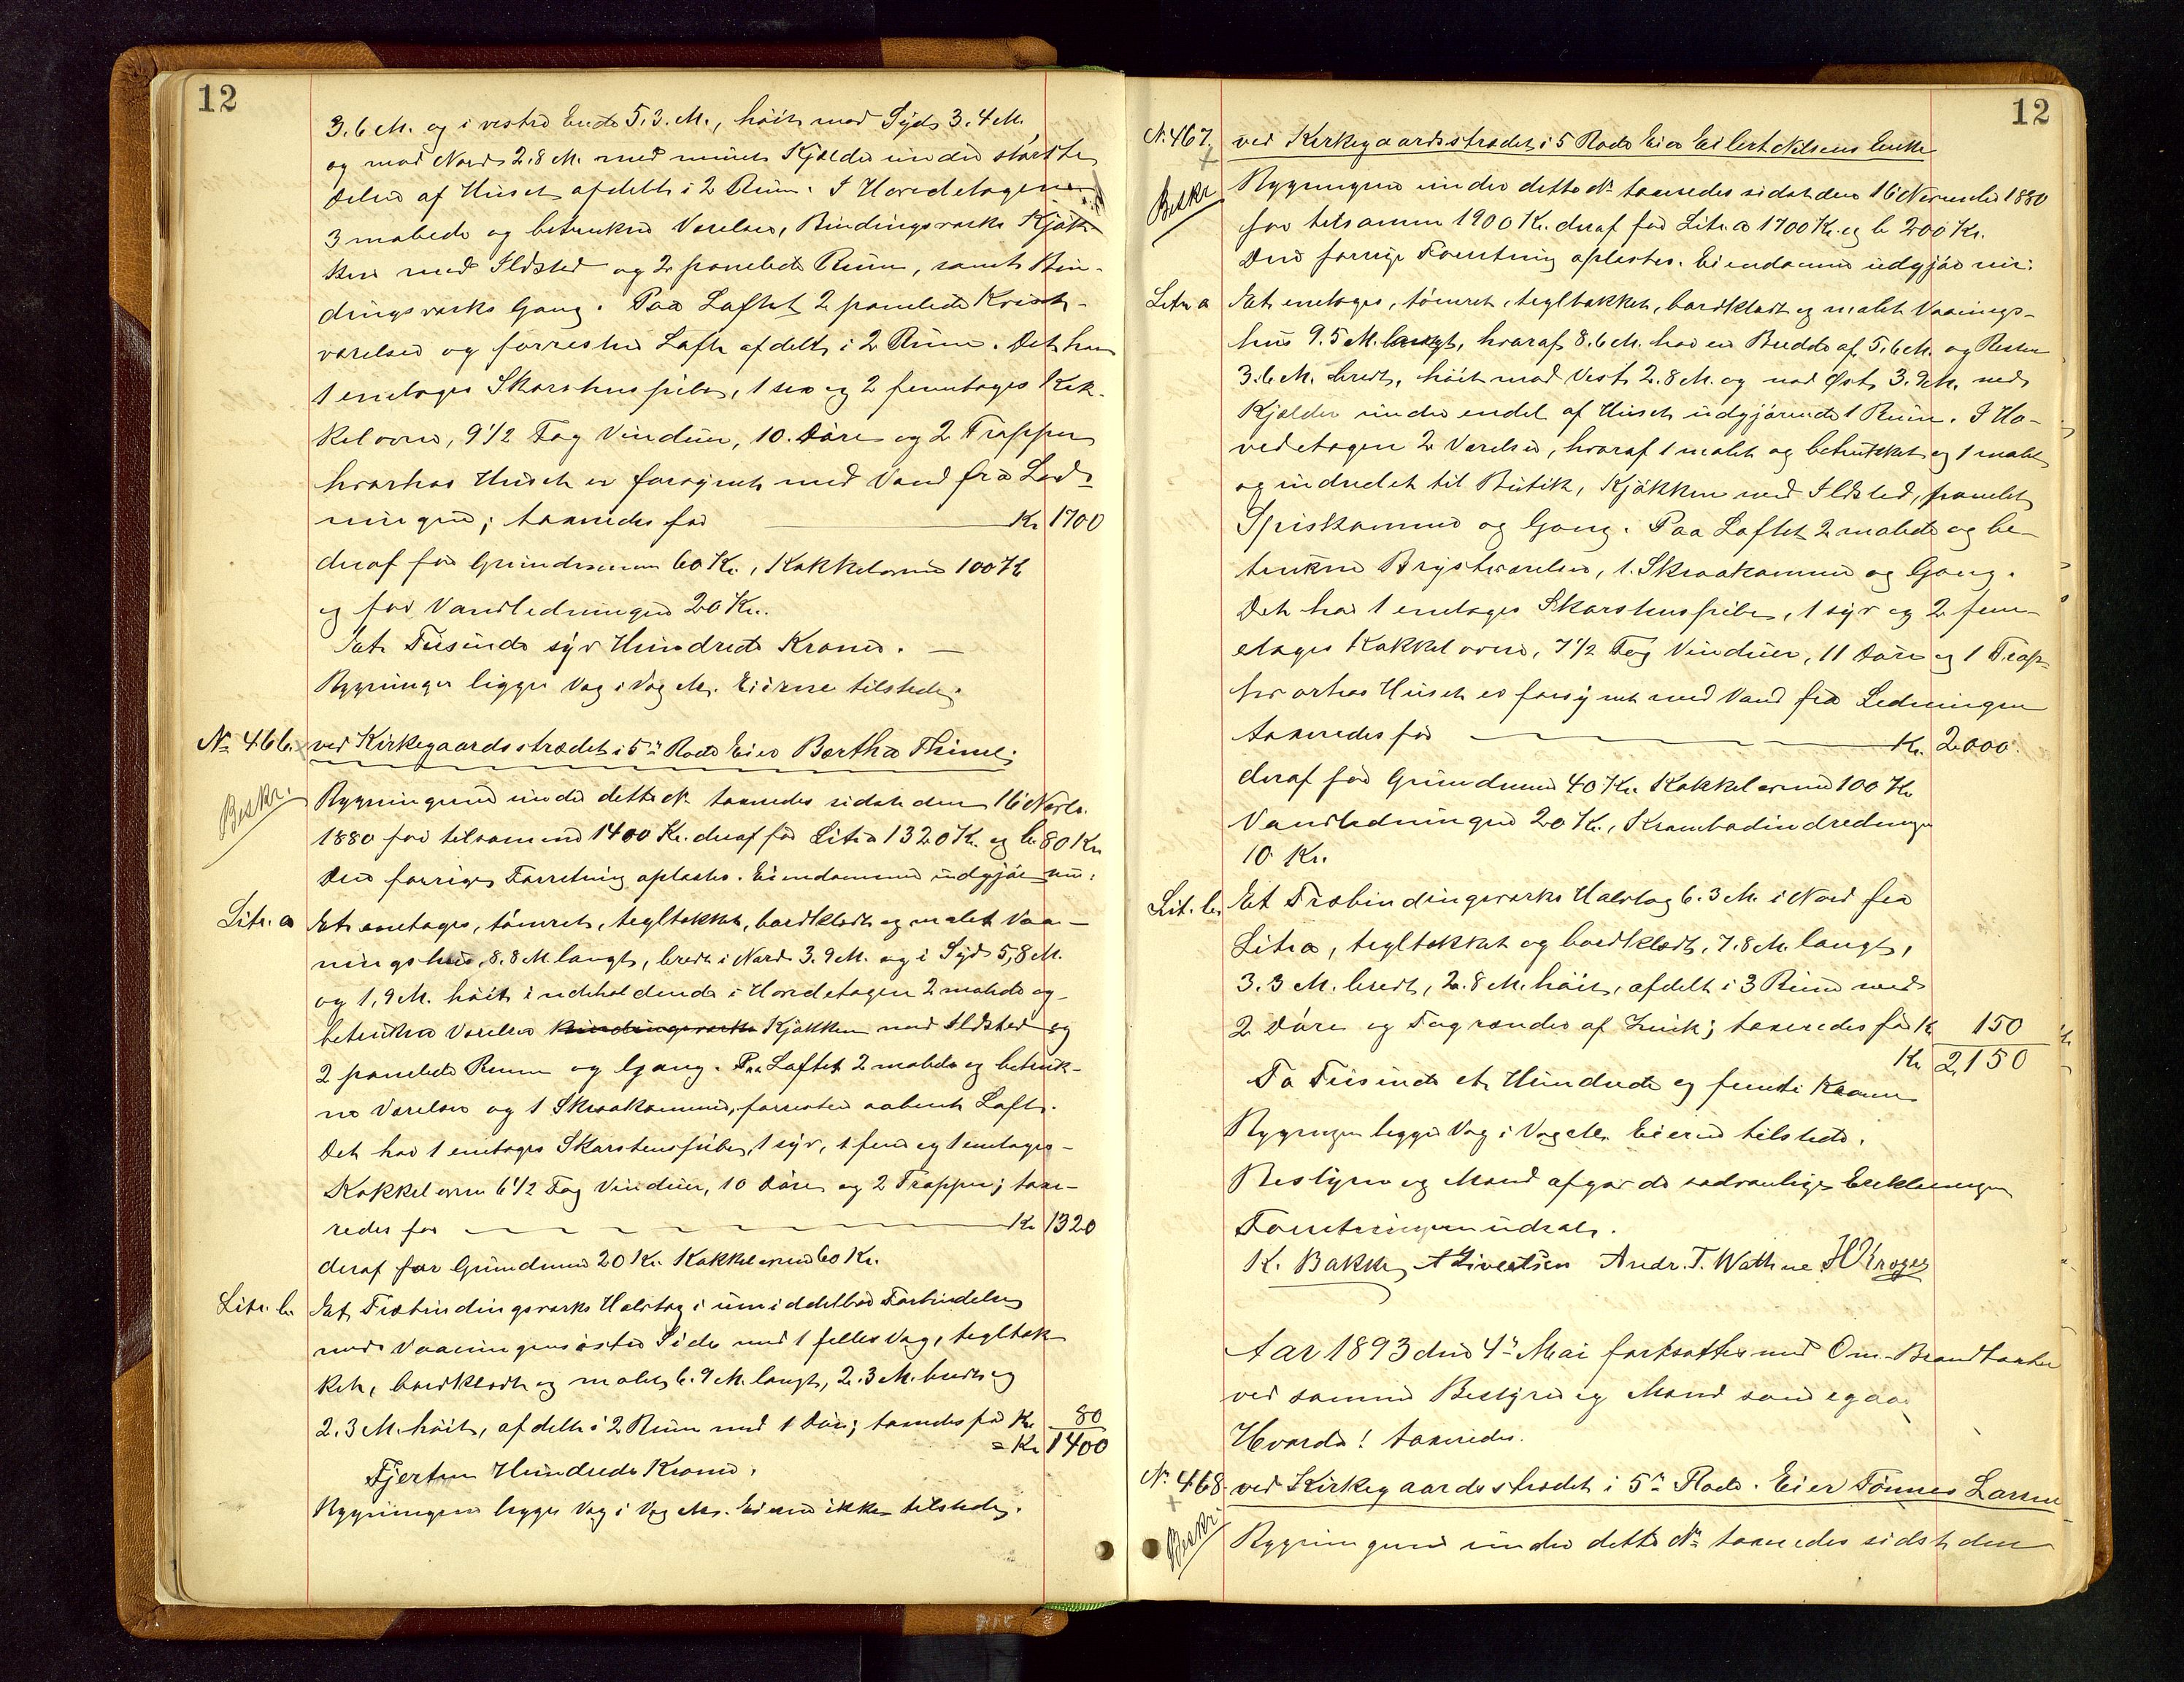 12
3.6 M. og i vestre Ende 5.3. M., höit mod Syd 3.4 M.
og mod Nord 2.8 M. med muret Kjælder under störste
Delen af Huset afdelt i 2 Rum. I Hovedetagen
3 malede og betrukne Værelser, Bindingsværks Kjök-
ken med Ildsted og 2 panelede Rum, samt Bin-
dingsværks Gang. Paa Loftet 2 panelede Kvist-
værelser og forresten Loft afdelt i 2 Rum. Det har
1 enetages Skorstenspibe, 1 sex og 2 femetages Kak-
kelovne, 9 1/2 Fag Vinduer, 10. Döre og 2 Trapper
hvorhos Huset er forsynet med Vand fra Led-
ningen; taxeredes for Kr 1700
deraf for Grundmuren 60 Kr., Kakkelovne 100 Kr
og for Vandledningen 20 Kr.
Et Tusinde syv Hundrede Kroner. —
Bygningen ligger Væg i Væg M. Eierne tilstede.
No 466. ved Kirkegaardsstrædet i 5te Rode Eier Bertha Thime.
Beskr.
Bygningerne under dette No taxeredes sidst den 16 Novbr.
1880 for tilsammen 1400 Kr. deraf for Litr a 1320 Kr. og b. 80 Kr
Den forrige Forretning oplæstes. Eiendommen udgjör nu:
Litr. a Et enetages, tömret, tegltækket, bordklædt og malet Vaa-
ningshus, 8.8 M. langt, bredt i Nord 3.9 M. og i Syd 5,8 M.
og 1,9 M. höit indeholdende i Hovedetagen 2 malede og
betrukne Værelser Bindingsværks Kjökken med Ildsted og
2 panelede Rum og Gang. Paa Loftet 2 malede og betruk-
ne Værelser og 1 Skraakammer, forresten aabent Loft.
Det har 1 enetages Skorstenspibe, 1 syv, 1 fem og 1 enetages
Kakkelovn 6 1/2 Fag Vinduer, 10 Döre og 2 Trapper; taxe-
redes for Kr 1320
deraf for Grundmuren 20 Kr. Kakkelovne 60 Kr.
Litr. b. Et Træbindingsværks Halvtag i umiddelbar Forbindelse
med Vaaningens östre Side med 1 fælles Væg, tegltæk-
ket, bordklædt og malet, 6.9 M. langt, 2.3 M. bredt og
2.3 M. höit, afdelt i 2 Rum med 1 Dör; taxeredes for Kr 80
= Kr 1400
Fjorten Hundrede Kroner.
Bygningerne ligger Væg i Væg M. Eieren ikke tilstede.
12
N. 467. ved Kirkegaardsstrædet i 5 Rode Eier Eilert Nilsens Enke
Beskr
Bygningerne under dette No taxeredes sidst den 16 November 1880
for tilsammen 1900 Kr. deraf for Litr. a 1700 Kr. og b 200 Kr.
Den forrige Forretning oplæstes. Eiendommen udgjör nu:
Litr. a Et enetages, tömret, tegltækket, bordklædt og malet Vaanings-
hus 9.5 M. langt, hvoraf 8.6 M. har en Bredde af 5.6 M. og Resten
3.6 M. bredt, höit mod Vest 2.8 M. og mod Öst 3.9 M. med
Kjælder under endel af Huset udgjörende 1 Rum. I Ho-
vedetagen 2 Værelser, hvoraf 1 malet og betrukket og 1 malet
og indredet til Butik, Kjökken med Ildsted, panelet
Spiskammer og Gang. Paa Loftet 2 malede og be-
trukne Brystværelser, 1. Skraakammer og Gang.
Det har 1 enetages Skorstenspibe, 1 syv og 2 fem-
etages Kakkelovne, 7 1/2 Fag Vinduer, 11 Döre og 1 Trap-
hvorhos Huset er forsynet med Vand fra Ledningen
taxeredes for Kr. 2000.
deraf for Grundmuren 40 Kr. Kakkelovne 100 Kr
Vandledningen 20 Kr., Krambodindredningen
10 Kr.
Lit. b. Et Træbindingsværks Halvtag 6.3 M. i Nord fra
Litr a, tegltækket og bordklædt, 7.8 M. langt,
3.3 M. bredt, 2.8 M. höit, afdelt i 3 Rum med
2 Döre og Tagrender af Zink; taxeredes for K 150
Kr 2,150
To Tusinde et Hundrede og femti Kroner
Bygningen ligger Væg i Væg M. Eieren tilstede.
Bestyrer og Mænd afgav de sædvanlige Erklæringer
Forretningen udsat.
K. Bakke A Sivertsen Andr. T. Wathne H Kroger
Aar 1893 den 4de Mai fortsattes med Om-Brandtaxter
ved samme Bestyrer og Mænd som igaar
Hvorda! taxeredes.
N. 468. ved Kirkegaardsstrædet i 5te Rode. Eier Tönnes Larsen
Beskr
Bygningerne under dette No taxeredes sidst den